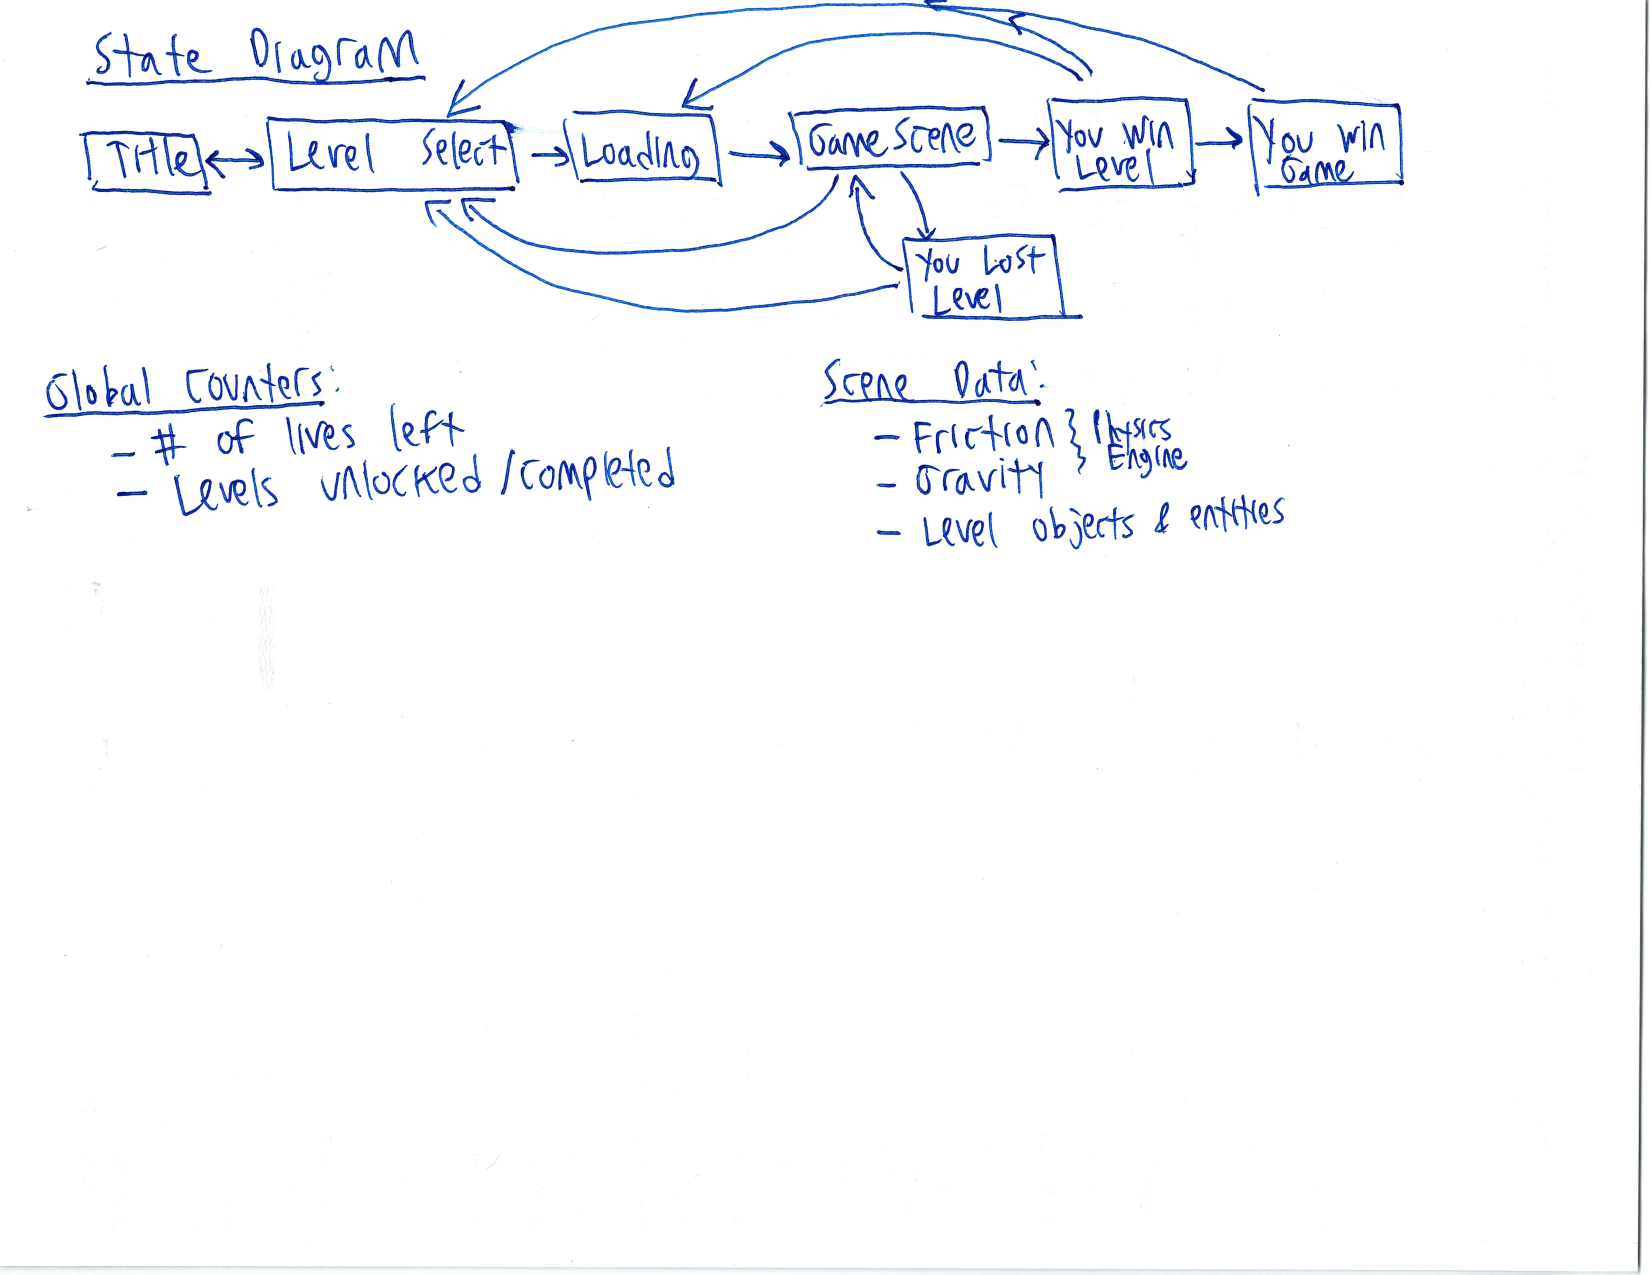 State Diagram
Title
Level Select
Loading
Game Scene
You Win
Level
You Win
Game
You Lost
Level
Global Counters:
- # of lives left
- Levels unlocked/completed
Scene Data:
- Friction } Physics
- Gravity } Engine
- Level objects & entities